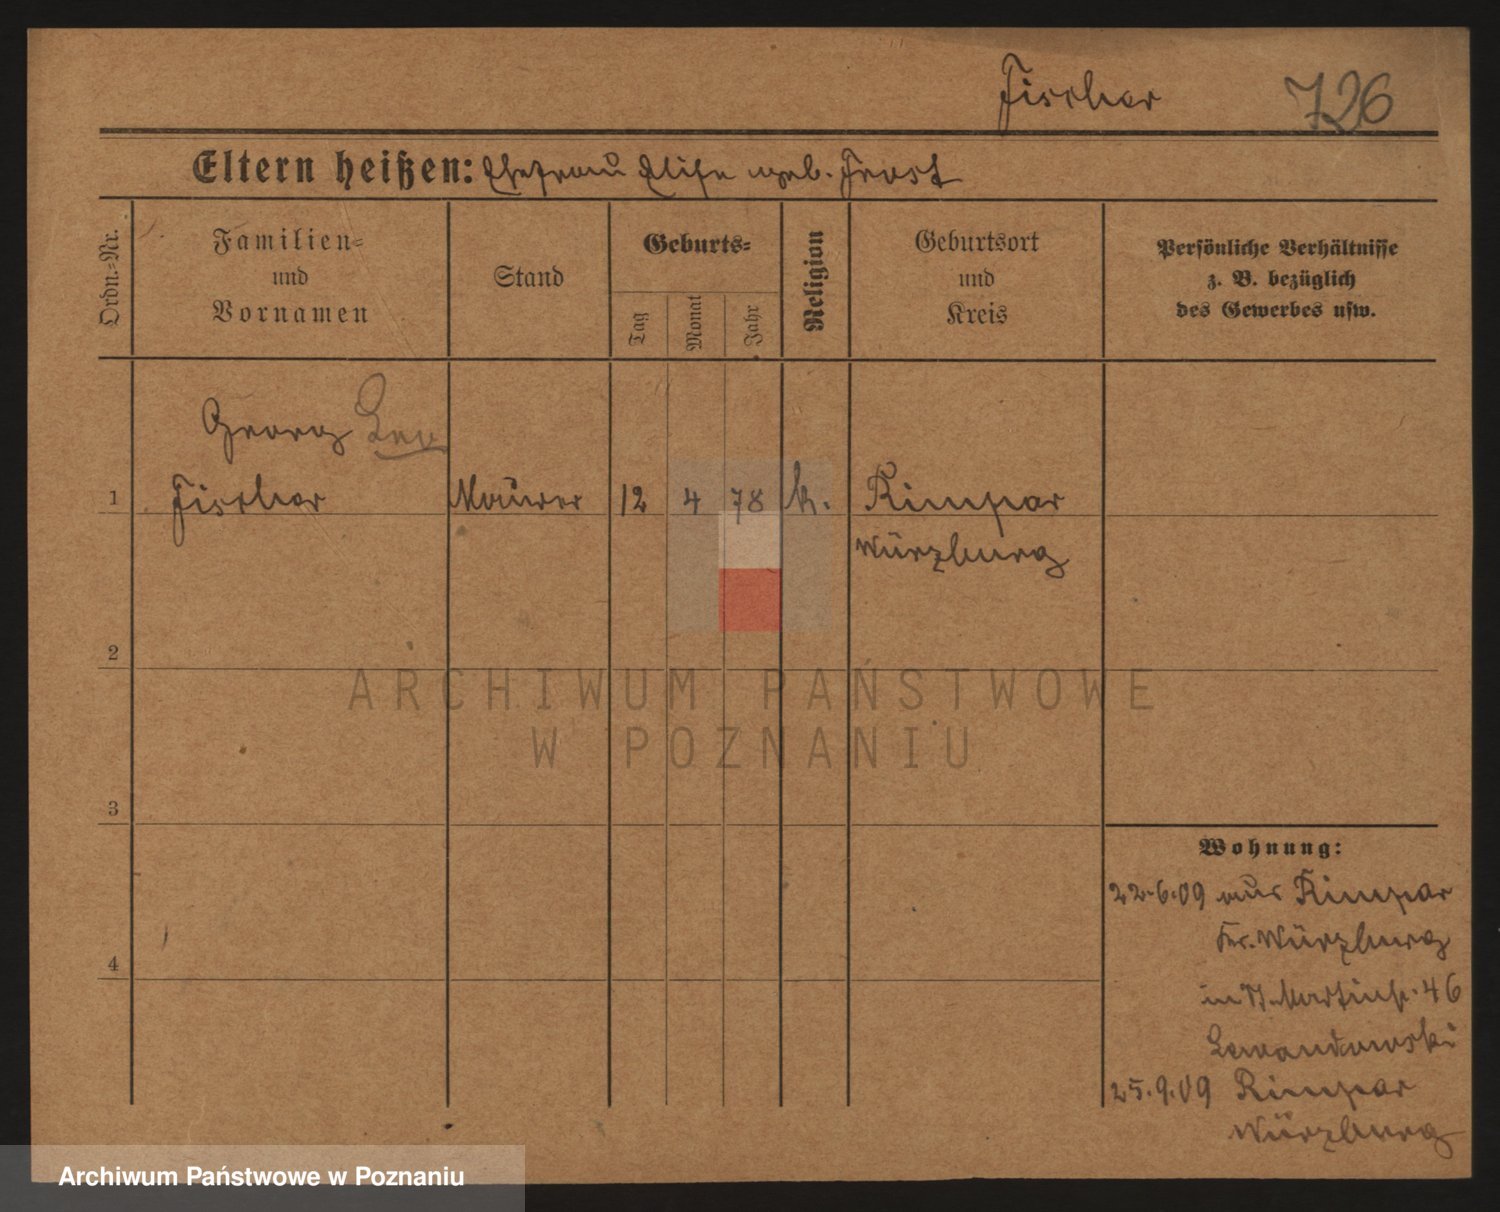 Fischer 726
Eltern heißen: Ehefrau Elise geb. Frost
Ordn.-Nr.
Familien-
und
Vornamen
Stand
Geburts-
Tag
Monat
Jahr
Religion
Geburtsort
und
Kreis
Persönliche Verhältnisse
z. B. bezüglich
des Gewerbes usw.
Georg Leo
1 Fischer Maurer 12 4 78 k. Rimpar
Würzburg
2
ARCHIWUM PAŃSTWOWE
W POZNANIU
3
Wohnung:
22.6.09 aus Rimpar
Kr. Würzburg
4
in St. Martinstr. 46
Lewandowski
25.9.09 Rimpar
Würzburg
Archiwum Państwowe w Poznaniu